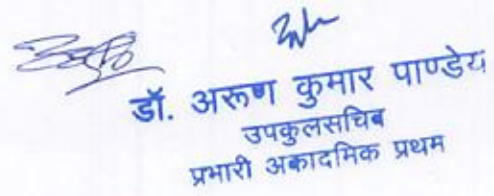 डॉ. अरूण कुमार पाण्डेय
उपकुलसचिब
प्रभारी अकादमिक प्रथम